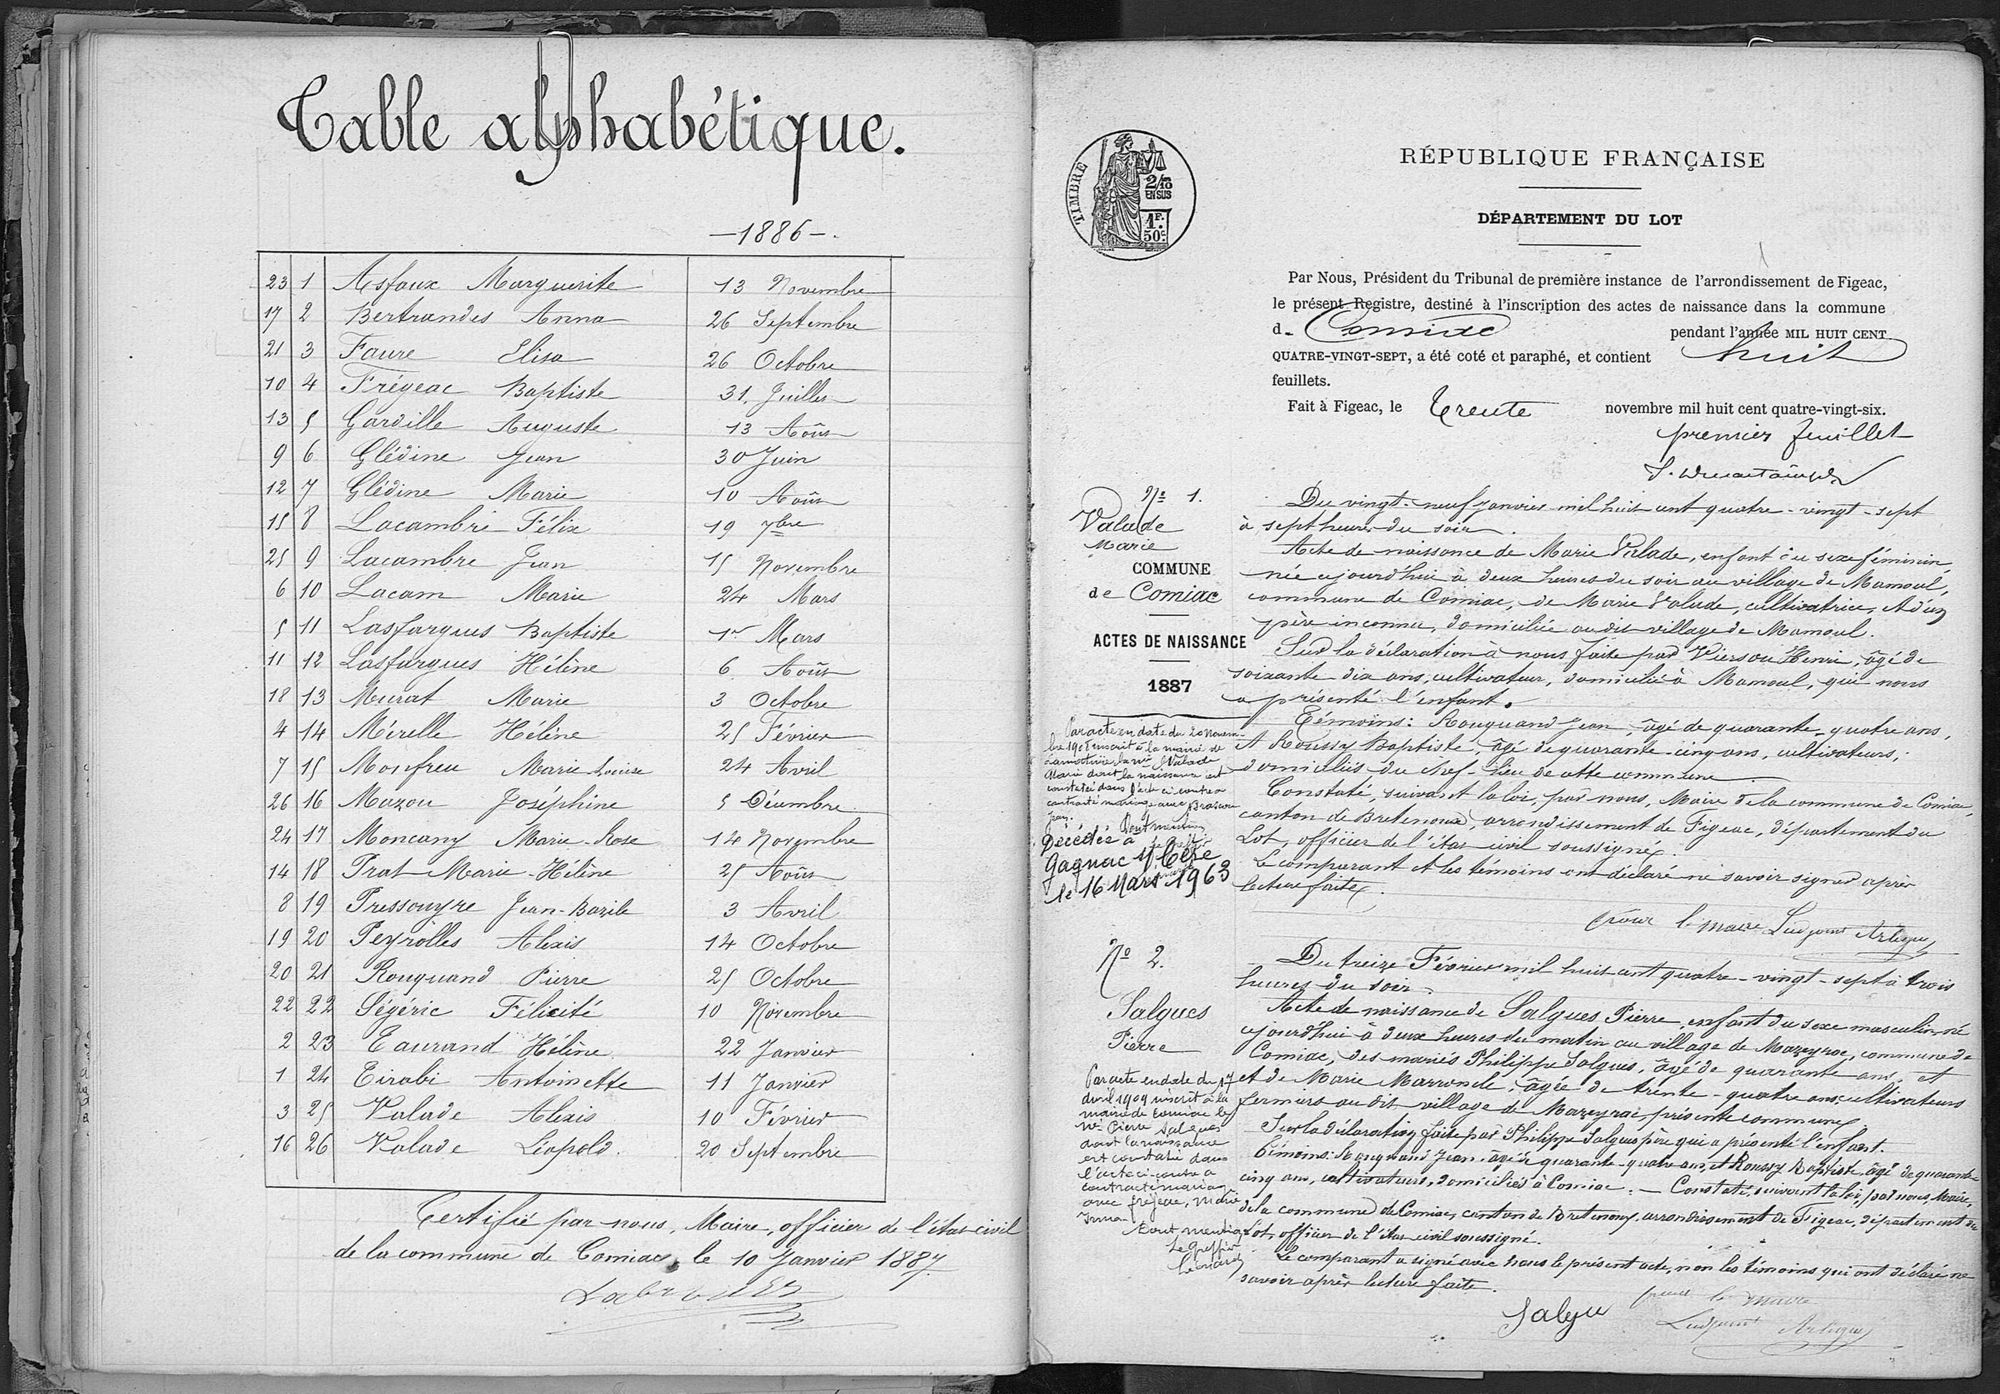 Table alphabétique.
—1886—.
23 1 Asfaux Marguerite 13 Novembre
17 2 Bertrandes Anna 26 Septembre
21 3 Faure Elisa 26 Octobre
10 4 Frégeac Baptiste 31 Juillet
13 5 Garville Auguste 13 Août
9 6 Glédine Jean 30 Juin
12 7 Glédine Marie 10 Août
15 8 Lacambre Félix 19 7bre
25 9 Lacambre Jean 15 Novembre
6 10 Lacam Marie 24 Mars
5 11 Lasfargues Baptiste 1er Mars
11 12 Lasfargues Hélène 6 Août
18 13 Murat Marie 3 Octobre
4 14 Mérelle Hélène 25 Février
7 15 Monfreu Marie-Louise 24 Avril
26 16 Mazou Joséphine 5 Décembre
24 17 Moncany Marie-Rose 14 Novembre
14 18 Prat Marie-Hélène 25 Août
8 19 Pressouyre Jean-Bazile 3 Avril
19 20 Peyrolles Alexis 14 Octobre
20 21 Rouquand Pierre 25 Octobre
22 22 Ségéric Félicité 10 Novembre
2 23 Taurand Hélène 22 Janvier
1 24 Tirabi Antoinette 11 Janvier
3 25 Valade Alexis 10 Février
16 26 Valade Léopold. 20 Septembre
Certifié par nous, Maire, officier de l'état civil
de la commune de Comiac, le 10 Janvier 1887.
TIMBRE
2/10
EN SUS
1F.
50c.
RÉPUBLIQUE FRANÇAISE
DÉPARTEMENT DU LOT
Par Nous, Président du Tribunal de première instance de l'arrondissement de Figeac,
le présent Registre, destiné à l'inscription des actes de naissance dans la commune
d- Comiac pendant l'année MIL HUIT CENT
QUATRE-VINGT-SEPT, a été coté et paraphé, et contient huit
feuillets.
Fait à Figeac, le Trente novembre mil huit cent quatre-vingt-six.
premier feuillet
No 1.
Valade
Marie
COMMUNE
de Comiac
ACTES DE NAISSANCE
1887
Par acte en date du 20 Novem-
bre inscrit à la mairie de
Valade
Marie dont la naissance est
constatée dans l'acte ci-contre a
contracté mariage avec
Jean.
Dont mention
Décédée à
Gagnac s/ Cère
le 16 Mars 1963
Du vingt-neuf janvier mil huit cent quatre-vingt-sept
à sept heures du soir.
Acte de naissance de Marie Valade, enfant du sexe féminin,
née aujourd'hui à deux heures du soir au village de Mamoul,
commune de Comiac, de Marie Valade, cultivatrice, et d'un
père inconnu, domiciliée au dit village de Mamoul.
Sur la déclaration à nous faite par Viersou Henri, âgé de
soixante dix ans, cultivateur, domicilié à Mamoul, qui nous
a présenté l'enfant.
Témoins: Rouquand Jean, âgé de quarante-quatre ans,
et Roussy Baptiste, âgé de quarante-cinq ans, cultivateurs,
domiciliés du chef-lieu de cette commune.
Constaté, suivant la loi, par nous, Maire de la commune de Comiac,
canton de Bretenoux, arrondissement de Figeac, département du
Lot, officier de l'état civil soussigné.
Le comparant et les témoins ont déclaré ne savoir signer après
lecture faite.
pour le maire L'adjoint
No 2.
Salgues
Pierre
Par acte en date du 17
avril 1909 inscrit à la
mairie de Comiac le
né Pierre Salgues
dont la naissance
est constatée dans
l'acte ci-contre a
contracté mariage
avec Fréjeac, Marie
Irma
Dont mention
Le Greffier
Du treize Février mil huit cent quatre-vingt-sept à trois
heures du soir.
Acte de naissance de Salgues Pierre, enfant du sexe masculin, né
aujourd'hui à deux heures du matin au village de Mazeyrac, commune de
Comiac, des mariés Philippe Salgues, âgé de quarante ans, et
et de Marie Marroncle, âgée de trente-quatre ans, cultivateurs
fermiers au dit village de Mazeyrac, présente commune.
Sur la déclaration faite par Philippe Salgues père qui a présenté l'enfant.
Témoins: Rouquand Jean âgé de quarante-quatre ans, et Roussy Baptiste, âgé de quarante
cinq ans, cultivateurs, domiciliés à Comiac. — Constaté, suivant la loi, par nous, Maire,
de la commune de Comiac, canton de Bretenoux, arrondissement de Figeac, département du
Lot, officier de l'état civil soussigné.
Le comparant a signé avec nous le présent acte, non les témoins qui ont déclaré ne
savoir après lecture faite.
Salgu
pour le maire
L'adjoint